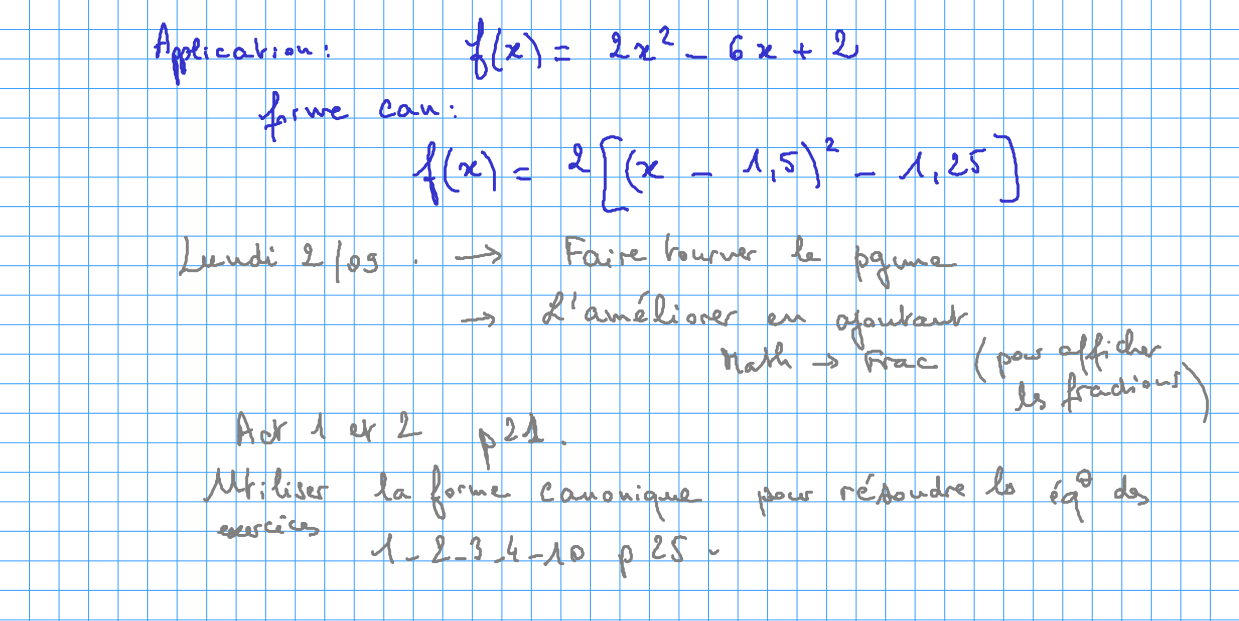 Application: f(x) = 2x² - 6x + 2
forme can:
f(x) = 2[(x - 1,5)² - 1,25]
Lundi 2/09. → Faire tourner le pgme
→ L'améliorer en ajoutant
Math → Frac (pour afficher
les fractions)
Act 1 et 2 p21.
Utiliser la forme canonique pour résoudre les éq° des
exercices
1-2-3-4-10 p25.